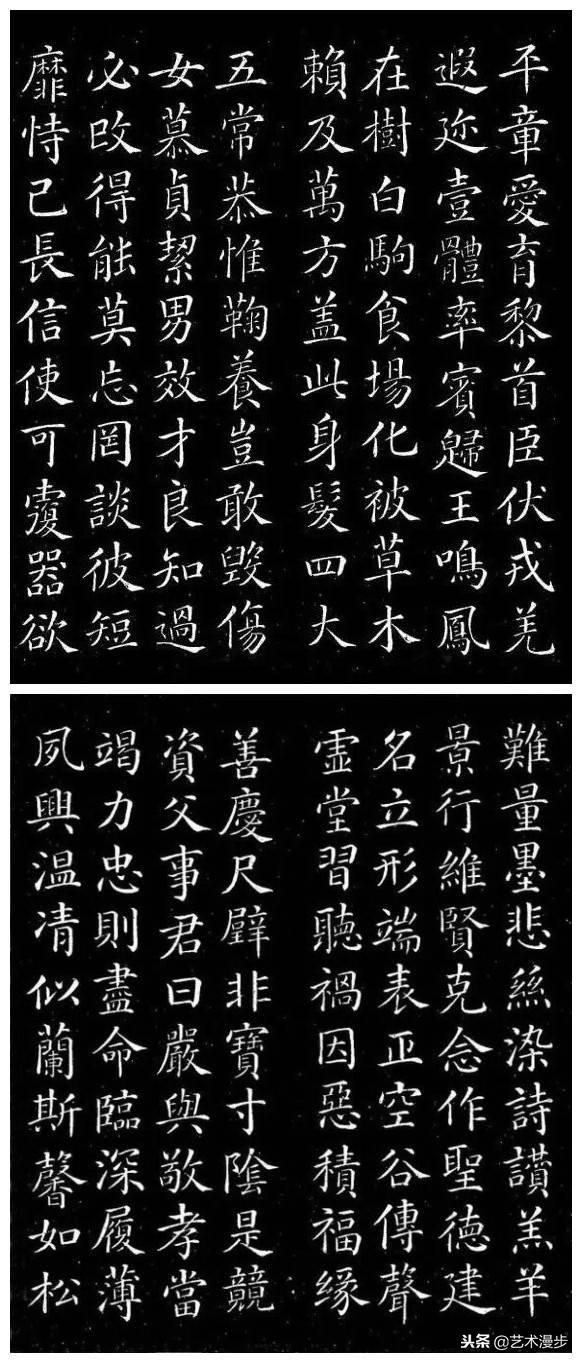 平章愛育黎首臣伏戎羌
遐迩壹體率賓歸王鳴鳳
在樹白駒食場化被草木
賴及萬方盖此身髮四大
五常恭惟鞠養豈敢毀傷
女慕貞絜男效才良知過
必改得能莫忘罔談彼短
靡恃己長信使可覆器欲
難量墨悲絲染詩讃羔羊
景行維賢克念作聖德建
名立形端表正空谷傳聲
虛堂習聽禍因惡積福緣
善慶尺璧非寶寸陰是競
資父事君曰嚴與敬孝當
竭力忠則盡命臨深履薄
夙興温凊似蘭斯馨如松
头条 @艺术漫步